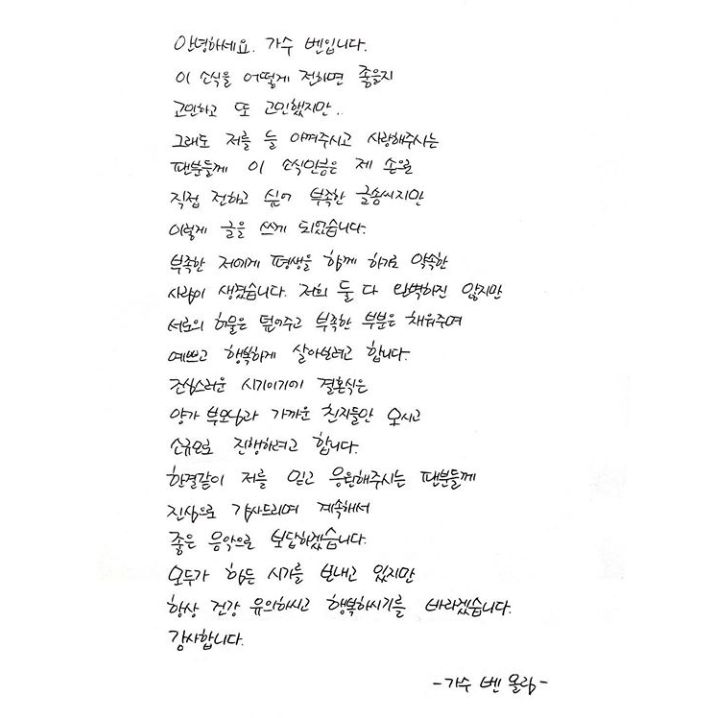 안녕하세요. 가수 벤입니다.
이 소식을 어떻게 전하면 좋을지
고민하고 또 고민했지만..
그래도 저를 늘 아껴주시고 사랑해주시는
팬분들께 이 소식만큼은 제 손으로
직접 전하고 싶어 부족한 글솜씨지만
이렇게 글을 쓰게 되었습니다.
부족한 저에게 평생을 함께 하기로 약속한
사람이 생겼습니다. 저희 둘 다 완벽하진 않지만
서로의 허물은 덮어주고 부족한 부분은 채워주며
예쁘고 행복하게 살아보려고 합니다.
조심스러운 시기이기에 결혼식은
양가 부모님과 가까운 친지들만 모시고
소규모로 진행하려고 합니다.
한결같이 저를 믿고 응원해주시는 팬분들께
진심으로 감사드리며 계속해서
좋은 음악으로 보답하겠습니다.
모두가 힘든 시기를 보내고 있지만
항상 건강 유의하시고 행복하시기를 바라겠습니다.
감사합니다.
-가수 벤 올림-